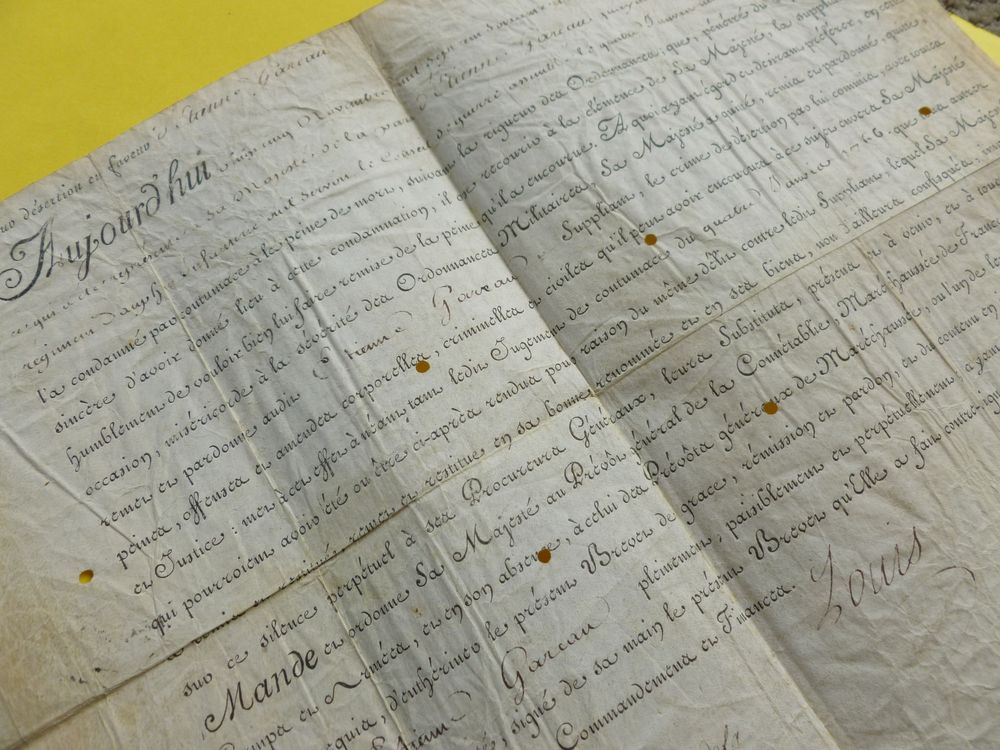 désertion en faveur d'Etienne Gareau
Aujourd'hui
régiment Dauphin
l'a condamné par contumace à la peine de mort, suivant la rigueur des Ordonnances; que, pénétré du
sincère d'avoir donné lieu à cette condamnation, il a recours à la clémence de Sa Majesté, la suppliant
humblement de vouloir bien lui faire remise de la peine qu'il a encourue. A quoi ayant égard et devant préférer, en cette
occasion, miséricorde à la sévérité des Ordonnances Militaires, Sa Majesté a quitté, remis et pardonné, quitte,
remet et pardonne audit Etienne Gareau Suppliant, le crime de désertion par lui commis, avec toutes
peines, offenses et amendes corporelles, criminelles et civiles qu'il peut avoir encourues à ce sujet envers Sa Majesté
et Justice; met et efface à néant, tant ledit Jugement de contumace du quatre Janvier 1766. que tous autres
qui pourroient avoir été ou être ci-après rendus pour raison du même délit contre ledit Suppliant, lequel Sa Majesté
et restitue en sa bonne renommée et en ses biens, non d'ailleurs confisqués,
sur ce silence perpétuel à ses Procureurs Généraux, leurs Substituts, présens et à venir, et à tous
Mande et ordonne Sa Majesté au Prévôt Général de la Connétablie, Maréchaussée de France,
Camps et Armées, et en son absence, à celui des Prévôts généraux de Maréchaussée, ou l'un de
requis, d'enthériner le présent Brevet de grace, rémission et pardon, et du contenu en
Etienne Gareau pleinement, paisiblement et perpétuellement, à
signé de sa main le présent Brevet qu'Elle a fait contre-signer
Commandemens et Finances.
Louis